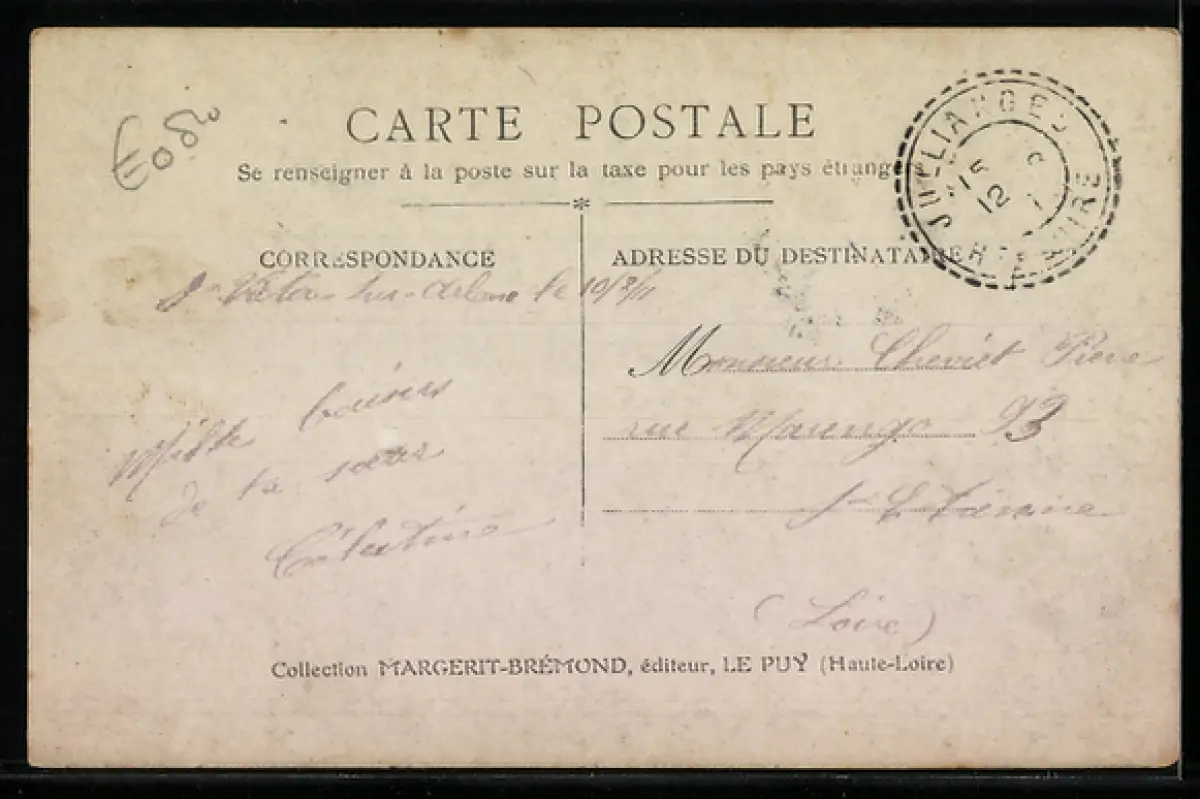 CARTE POSTALE
Se renseigner à la poste sur la taxe pour les pays étrangers
CORRESPONDANCE
ADRESSE DU DESTINATAIRE
JULLIANGES
15
12
Hte LOIRE
St Victor sur-Arlanc le 10/8/11
Mille baisers
de ta sœur
Célestine
Monsieur Pierre
rue Marengo 93
St Etienne
(Loire)
Collection MARGERIT-BRÉMOND, éditeur, LE PUY (Haute-Loire)